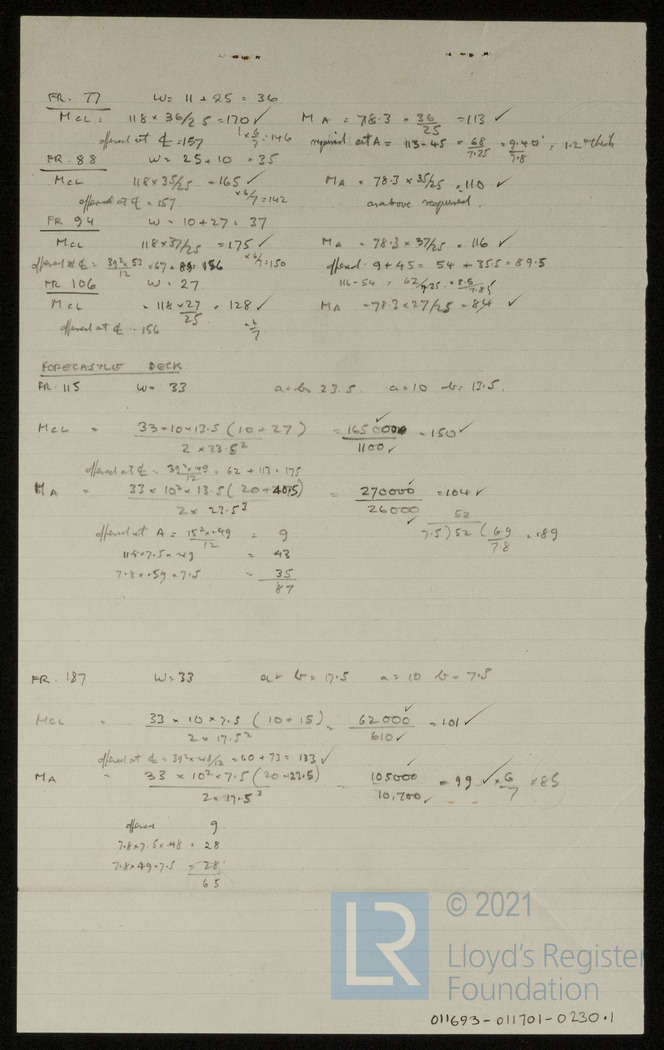 FR. 77 W = 11 + 25 = 36
MCL = 118 × 36/25 = 170 ✓ MA = 78.3 × 36/25 = 113 ✓
offered at ℄ = 157 × 6/7 = 146 required at A = 113 - 45 = 68/7.25 = 9.40/7.8 = 1.2" thick
FR. 88 W = 25 + 10 = 35
MCL 118 × 35/25 = 165 ✓ MA = 78.3 × 35/25 = 110 ✓
offered at ℄ = 157 × 6/7 = 142 as above required.
FR 94 W = 10 + 27 = 37
MCL 118 × 37/25 = 175 ✓ MA = 78.3 × 37/25 = 116 ✓
offered at ℄ = 39² × 53/12 = 67 + 89 = 156 × 6/7 = 150 offered 9 + 45 = 54 + 35.5 = 89.5
FR 106 W = 27 116 - 54 = 62/7.25 = 8.5/7.85
MCL = 118 × 27/25 = 128 ✓ MA = 78.3 × 27/25 = 84 ✓
offered at ℄ = 156 6/7
FORECASTLE DECK
FR. 115 W = 33 a + b = 23.5. a = 10 b = 13.5.
MCL = 33 × 10 × 13.5 (10 + 27) / 2 × 23.5² = 165000 / 1100 ✓ = 150 ✓
offered at ℄ = 39² × 49/12 = 62 + 113 = 175
MA = 33 × 10² × 13.5 (20 + 40.5) / 2 × 23.5³ = 270000 / 26000 ✓ = 104 ✓
52
7.5) 52 ( 6.9/7.8 = .89
offered at A = 15² × .49/12 = 9
11.8 × 7.5 × .49 = 43
7.8 × .59 × 7.5 = 35
87
FR. 187 W = 33 a + b = 17.5 a = 10 b = 7.5
MCL = 33 × 10 × 7.5 (10 + 15) / 2 × 17.5² = 62000 / 610 ✓ = 101 ✓
offered at ℄ = 39² × .48/12 = 60 + 73 = 133 ✓
MA = 33 × 10² × 7.5 (20 + 22.5) / 2 × 17.5³ = 105000 / 10,700 ✓ = 99 ✓ × 6/7 × 85
offered 9
7.8 × 7.5 × .48 = 28
7.8 × 49 × 7.5 = 28
65
© 2021
LR
Lloyd's Register
Foundation
011693-011701-0230.1